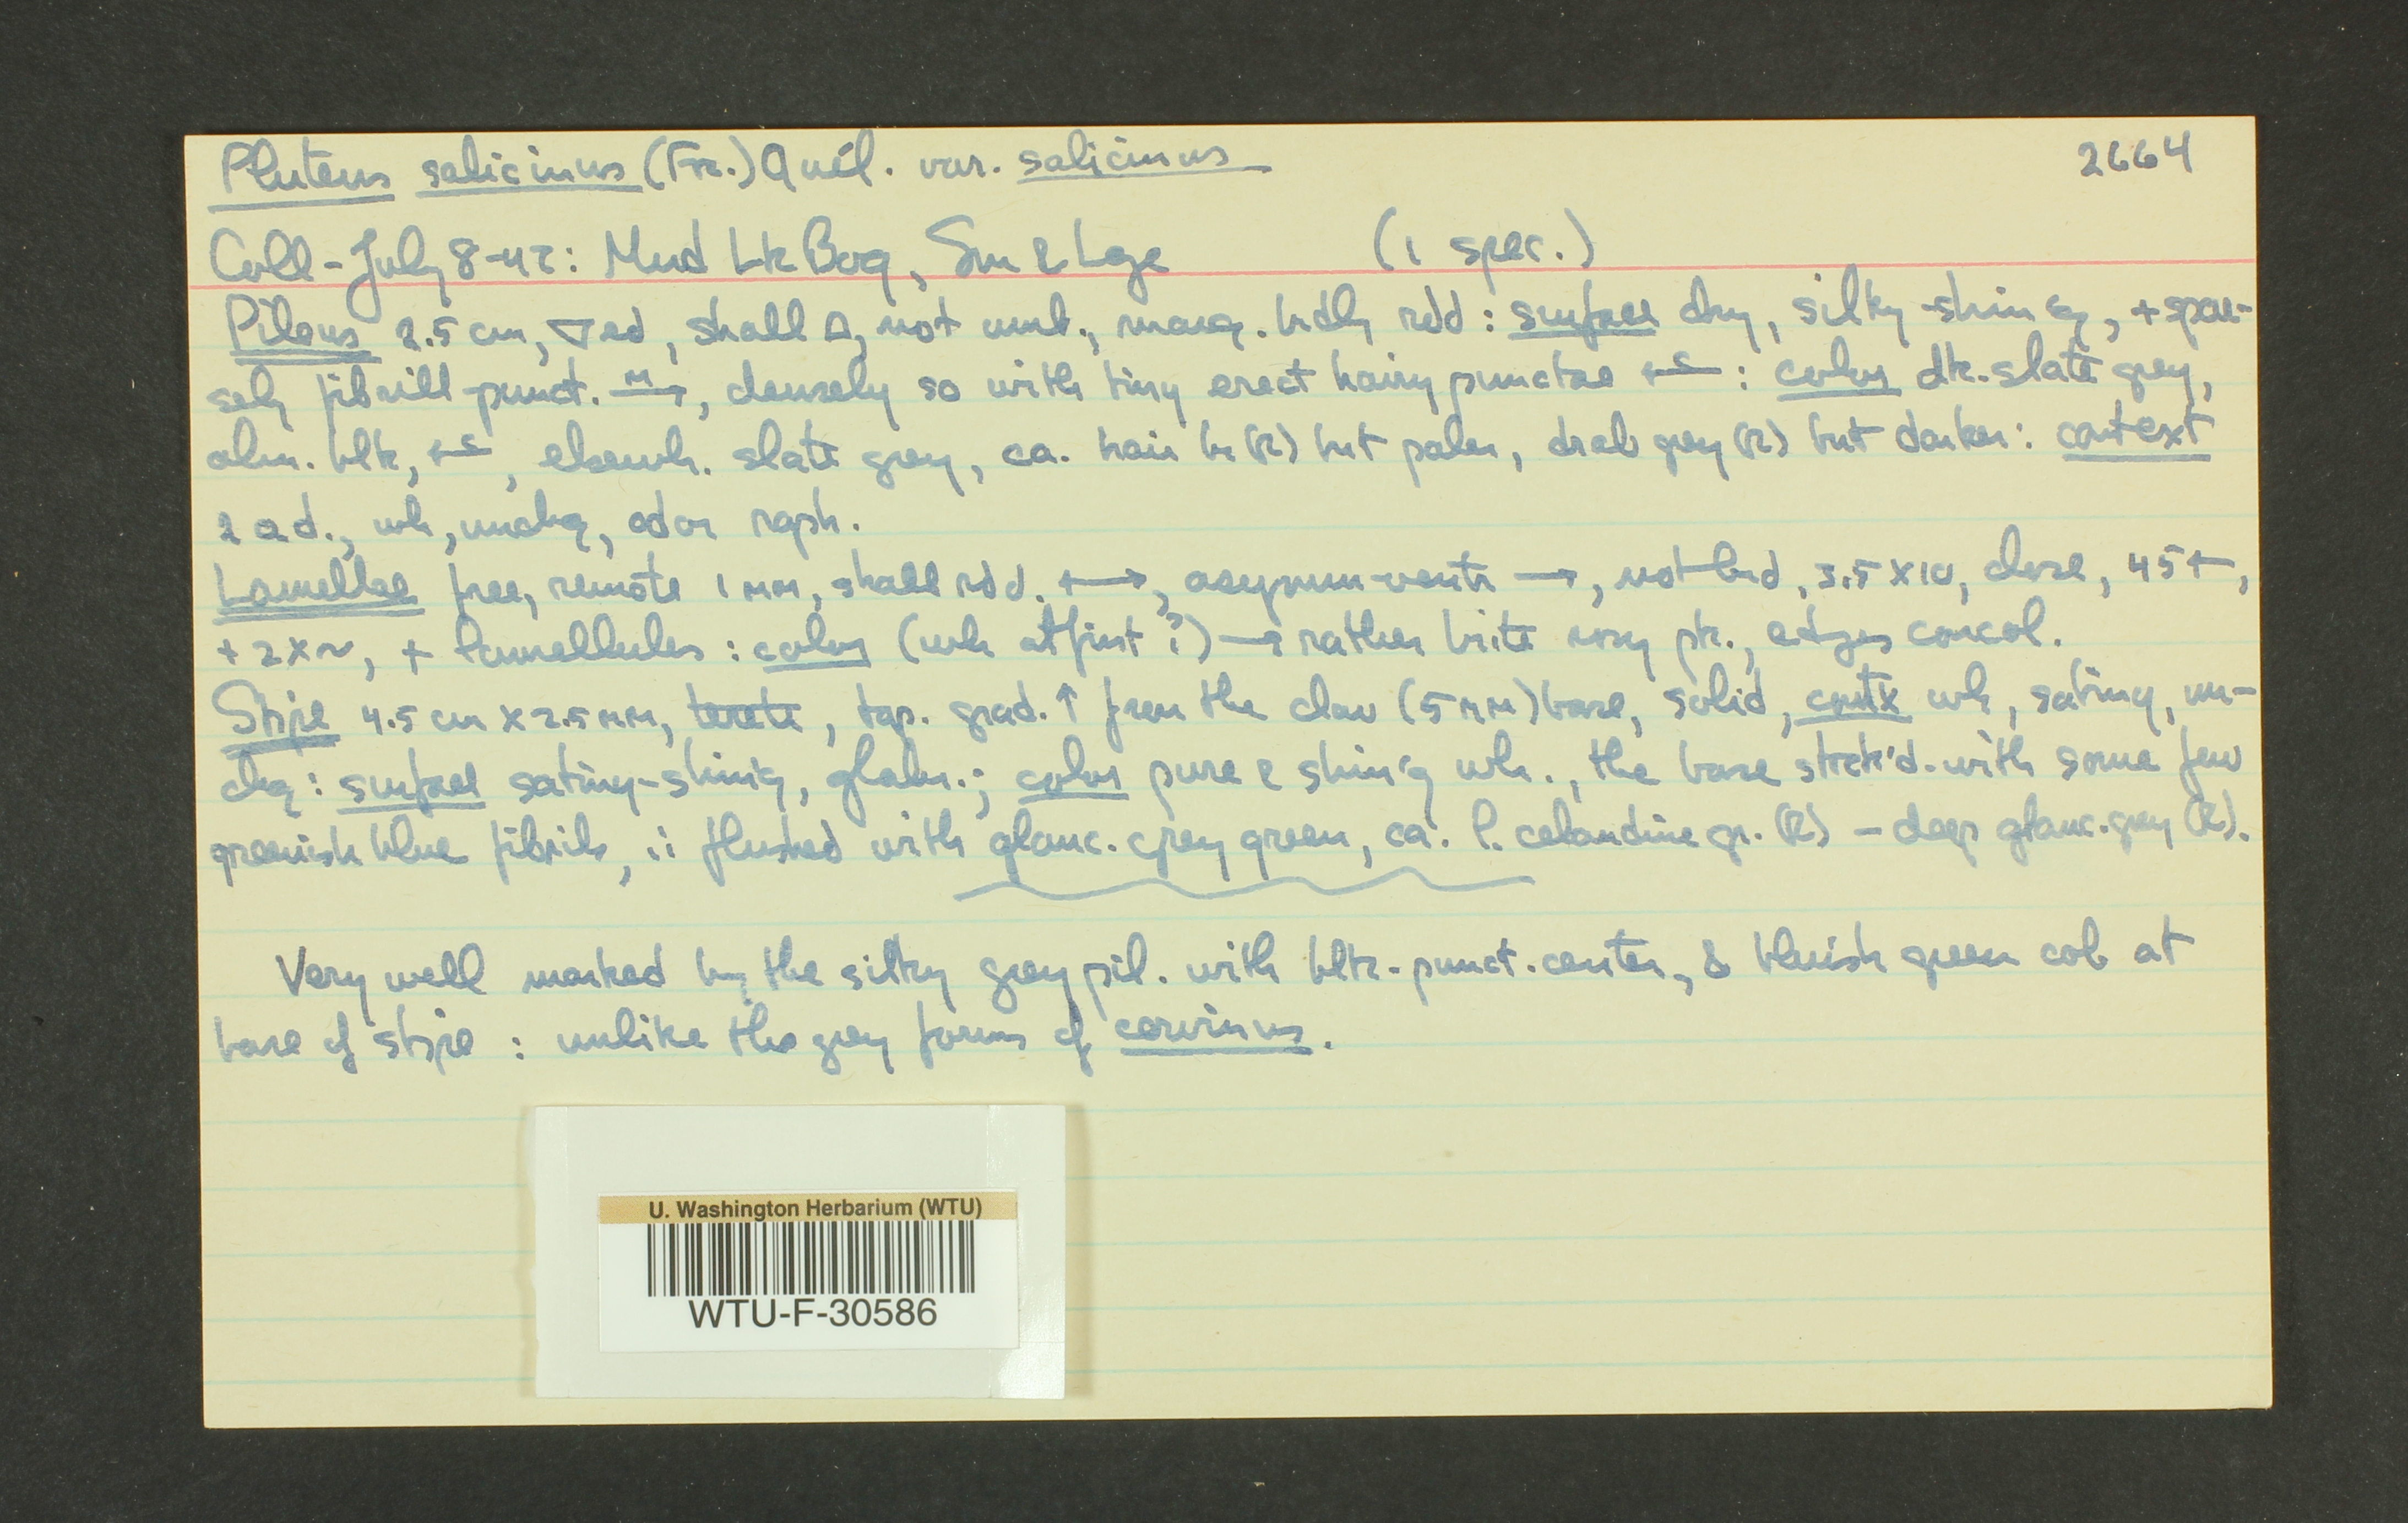 Pluteus salicinus (Fr.) Quél. var. salicinus 2664
Coll - July 8-42: Mud Lk Bog, Sm & Lge (1 spec.)
Pileus 2.5 cm, ▽ed, shall ⌓, not umb., marg. brdly rdd: surface dry, silky-shin'g, + spar-
sely fibrill-punct. M→, densely so with tiny erect hairy punctae ←c: color dk. slate grey,
alm. blk, ←c, elsewh. slate grey, ca. hair br (R) but paler, drab grey (R) but darker: context
wh, unchg, odor raph.
Lamellae free, remote 1 mm, shall rdd. ←→, asymm-ventr →, not brd, 3.5 x 10, close, 45+,
+ 2 x ~, + lamellules: color (wh at first?) → rather brite rosy pk., edges concol.
Stipe 4.5 cm x 2.5 mm, terete, tap. grad. ↑ from the clav (5 mm) base, solid, contx wh, satiny, un-
chg: surface satiny-shin'g, glabr.; color pure & shin'g wh., the base strek'd with some few
greenish blue fibrils, ii flushed with glauc. grey green, ca. l. celandine gr. (R) - deep glauc. grey (R).
Very well marked by the silky grey pil. with blk-punct. center, & bluish green col at
base of stipe: unlike the grey forms of cervinus.
U. Washington Herbarium (WTU)
WTU-F-30586